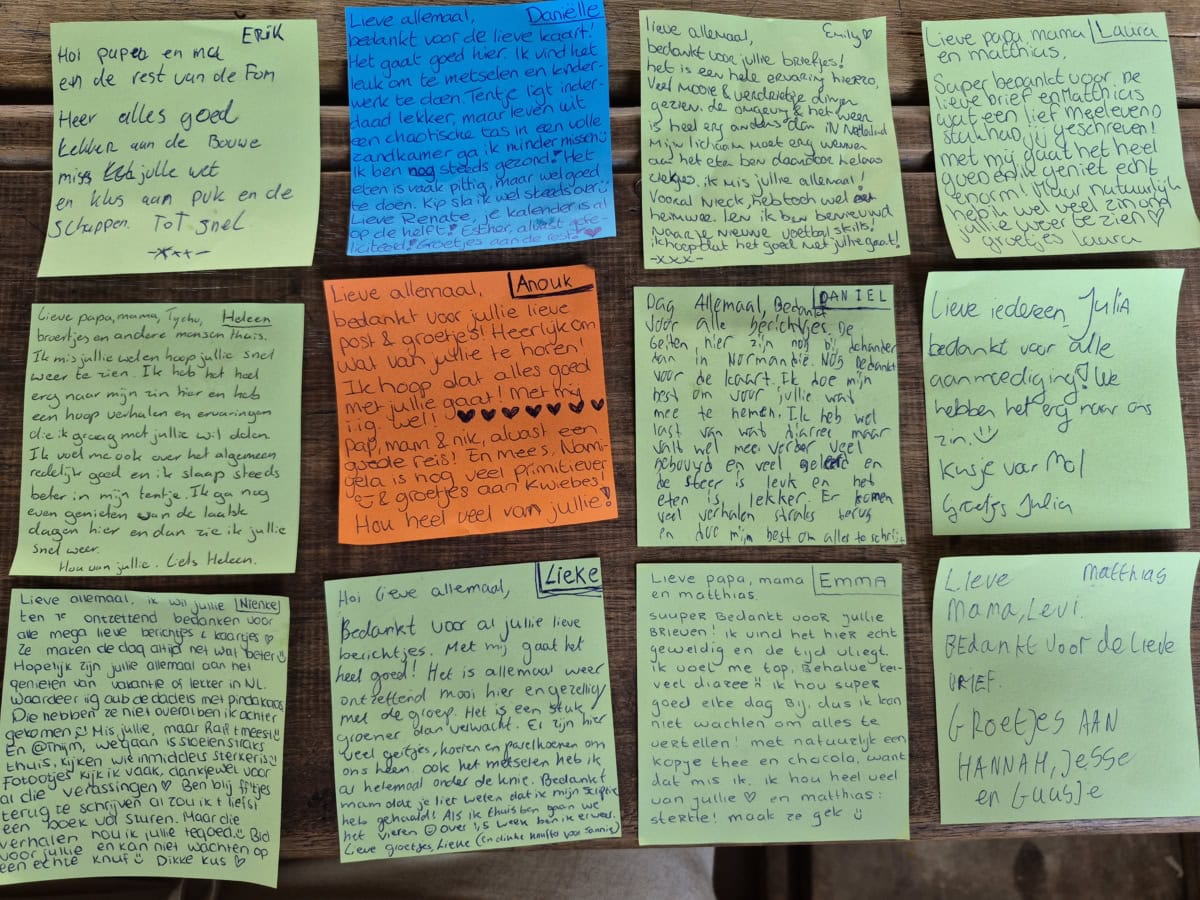 ERIK
Hoi papa en ma
en de rest van de Fam
Heer alles goed
Lekker aan de Bouwe
miss julle wel
en klus aan puk en de
schappen. Tot snel
-x**-
Daniëlle
Lieve allemaal,
bedankt voor de lieve kaart!
Het gaat goed hier. Ik vind het
leuk om te metselen en kinder-
werk te doen. Tentje ligt inder-
daad lekker, maar leven uit
een chaotische tas in een volle
zandkamer ga ik minder missen
Ik ben nog steeds gezond! Het
eten is vaak pittig, maar wel goed
te doen. Kip sla ik wel steeds over
Lieve Renate, je kalender is al
op de helft! Esther, alvast gefe-
liciteerd! Groetjes aan de rest! ♥
Emily ♡
lieve allemaal,
bedankt voor jullie briefjes!
het is een hele ervaring hierzo,
Veel mooie & verdrietige dingen
gezien. de omgeving & het weer
is heel erg anders dan in Nederland
Mijn lichaam moet erg wennen
aan het eten ben daardoor helaas
ziekjes. ik mis jullie allemaal!
Vooral Nieck, heb toch wel
heimwee. Ien ik ben benieuwd
Naar je nieuwe voetbal skills!
ik hoop dat het goed met jullie gaat!
-xxx-
Laura
Lieve papa, mama
en matthias,
Super bedankt voor de
lieve brief en Matthias
wat een lief meelevend
stuk had jij geschreven!
met mij gaat het heel
goed en ik geniet echt
enorm! Maar natuurlijk
heb ik wel veel zin om
jullie weer te zien ♡
groetjes Laura
Heleen
Lieve papa, mama, Tycho,
broertjes en andere mensen thuis.
Ik mis jullie wel en hoop jullie snel
weer te zien. Ik heb het heel
erg naar mijn zin hier en heb
een hoop verhalen en ervaringen
die ik graag met jullie wil delen.
Ik voel me ook over het algemeen
redelijk goed en ik slaap steeds
beter in mijn tentje. Ik ga nog
even genieten van de laatste
dagen hier en dan zie ik jullie
snel weer.
Hou van jullie. Liefs Heleen.
Anouk
Lieve allemaal,
bedankt voor jullie lieve
post & groetjes! Heerlijk om
wat van jullie te horen!
Ik hoop dat alles goed
met jullie gaat! Met mij
iig wel! ♥ ♥ ♥ ♥ ♥ ♥ ♥
Pap, mam & nik, alvast een
goede reis! En Mees, Nami-
gela is nog veel primitiever
& groetjes aan Kwiebes!
Hou heel veel van jullie!
DANIEL
Dag Allemaal, Bedankt
voor alle berichtjes. De
Geiten hier zijn nog bijdehander
dan in Normandie. NOG bedankt
voor de kaart. Ik doe mijn
best om voor jullie wat
mee te nemen. Ik heb wel
last van wat diarree maar
valt wel mee. verder veel
gebouwd en veel geleerd en
de sfeer is leuk en het
eten is lekker. Er komen
veel verhalen straks terug
en doe mijn best om alles te schrijf
Julia
Lieve iedereen,
bedankt voor alle
aanmoediging! We
hebben het erg naar ons
zin.
Kusje van Mol
Groetjes Julia
Nienke
Lieve allemaal, ik wil jullie
ten 1e ontzettend bedanken voor
alle mega lieve berichtjes & kaartjes ♡
Ze maken de dag altijd net wat beter
Hopelijk zijn jullie allemaal aan het
genieten van vakantie of lekker in NL.
Waardeer iig aub de dadels met pindakaas
Die hebben ze niet overal ben ik achter
gekomen Mis jullie, maar Ralf t meest
En @Thijm, we gaan is stoeien straks
thuis, kijken wie inmiddels sterker is
Fotootjes kijk ik vaak, dankjewel voor
al die verassingen ♡ Ben blij fitjes
terug te schrijven al zou ik t liefst
een boek vol sturen. Maar die
verhalen hou ik jullie tegoed. Bid
voor jullie en kan niet wachten op
een echte knuf Dikke kus ♡
Lieke
Hoi lieve allemaal,
Bedankt voor al jullie lieve
berichtjes. Met mij gaat het
heel goed! Het is allemaal weer
ontzettend mooi hier en gezellig
met de groep. Het is een stuk
groener dan verwacht. Er zijn hier
veel geitjes, koeien en parelhoenen om
ons heen. Ook het metselen heb ik
al helemaal onder de knie. Bedankt
mam dat je liet weten dat ik mijn scriptie
heb gehaald! Als ik thuis ben gaan we
het vieren Over 1,5 week ben ik er weer.
Lieve groetjes, Lieke (En dikke knuffel voor Jannie)
EMMA
Lieve papa, mama
en matthias.
suuper Bedankt voor jullie
Brieven! ik vind het hier echt
geweldig en de tijd vliegt.
ik voel me top, Behalve ker-
veel diaree!! ik hou super
goed elke dag Bij, dus ik kan
niet wachten om alles te
vertellen! met natuurlijk een
kopje thee en chocola, want
dat mis ik. ik hou heel veel
van jullie ♡ en matthias:
sterkte! maak ze gek
matthias
Lieve
Mama, Levi.
BEdankt voor de lieve
BRIEF.
GROETJES AAN
HANNAH, JESSE
en Guusje